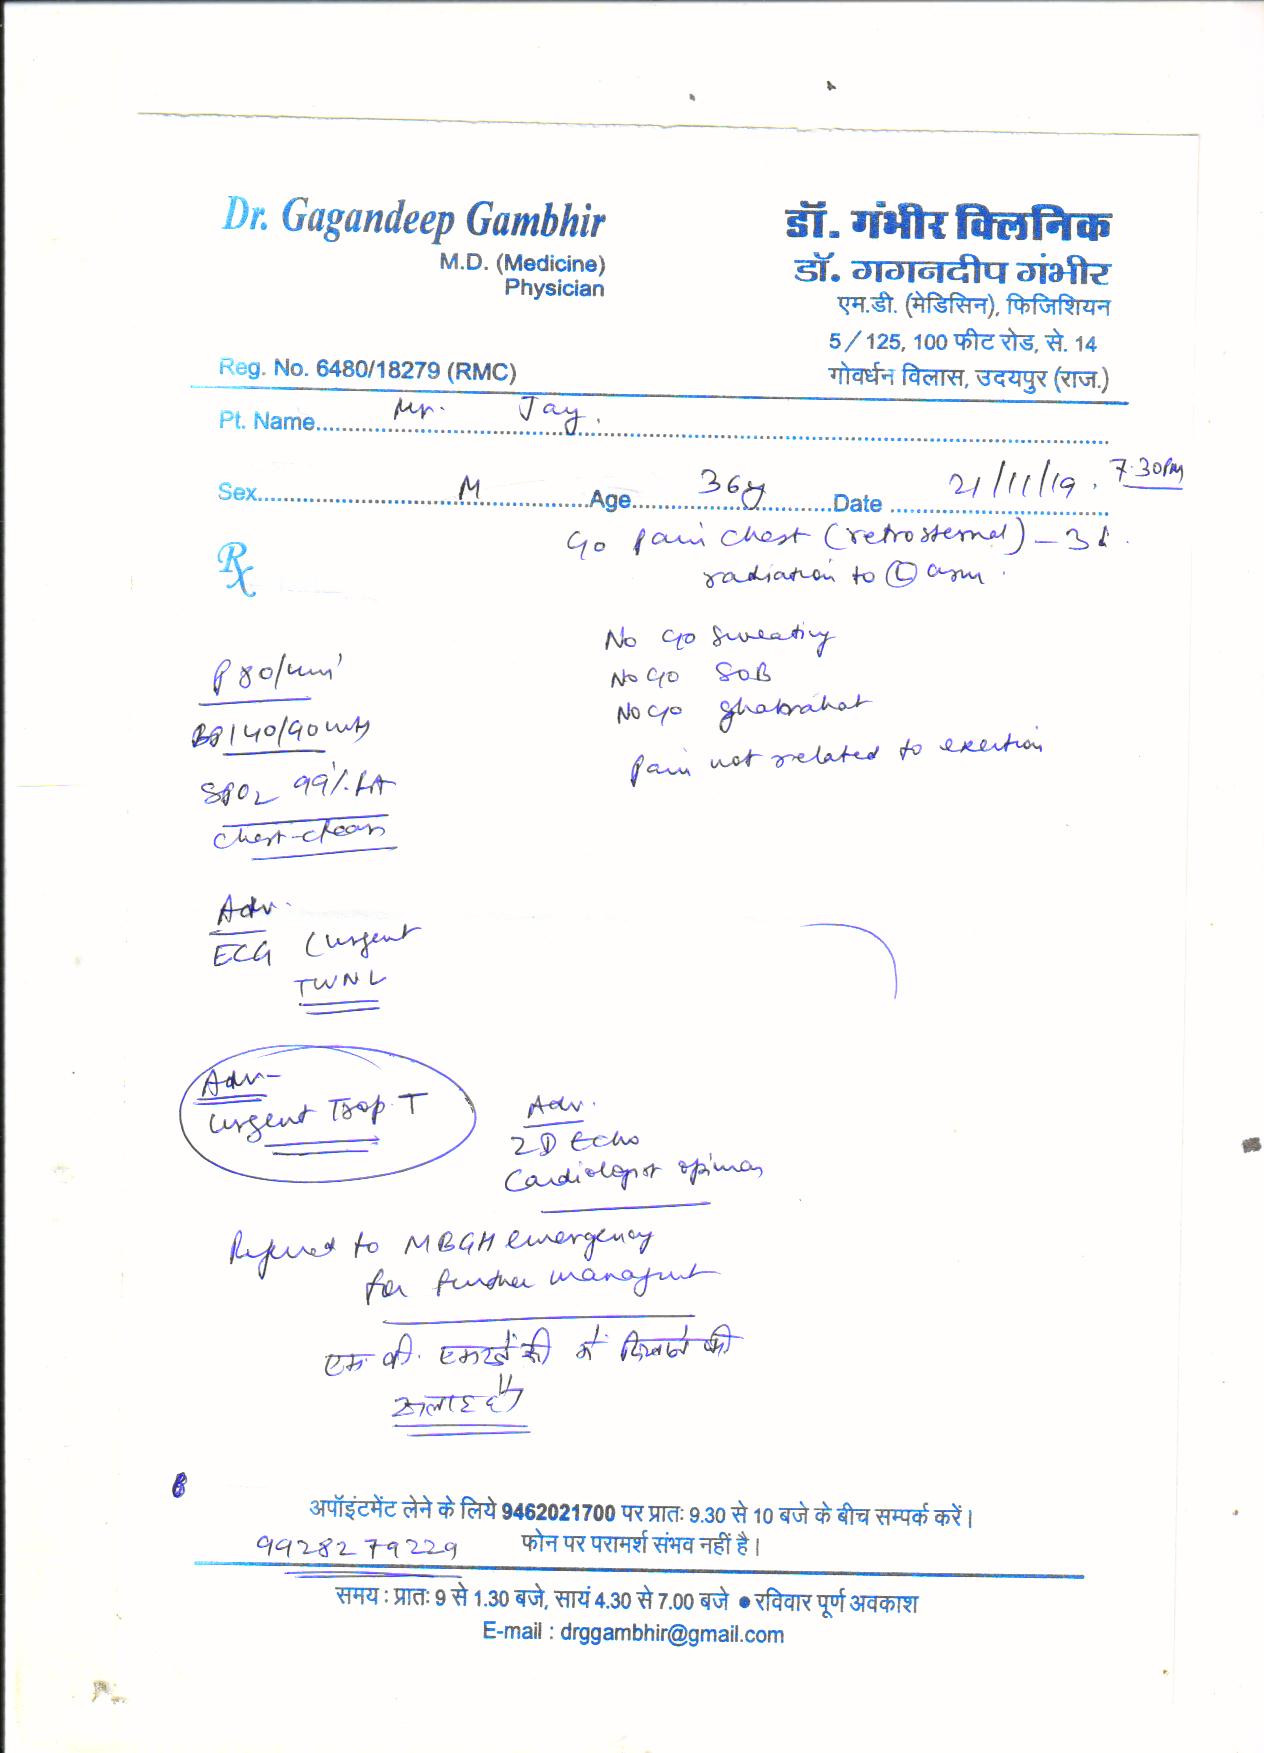 Dr. Gagandeep Gambhir
M.D. (Medicine)
Physician
Reg. No. 6480/18279 (RMC)
डॉ. गंभीर क्लिनिक
डॉ. गगनदीप गंभीर
एम.डी. (मेडिसिन), फिजिशियन
5/125, 100 फीट रोड, से. 14
गोवर्धन विलास, उदयपुर (राज.)
Pt. Name Mr. Jay.
Sex M Age 36y Date 21/11/19. 7:30PM
Rx
C/o pain chest (retrosternal) - 3d.
radiation to (L) arm.
No C/o Sweating
No C/o SOB
No C/o ghabrahat
Pain not related to exertion
P 80/min
BP 140/90 mmHg
SPO2 99% RA
Chest-clear
Adv.
ECG (urgent
TWNL
Adv-
Urgent Trop. T
Adv.
2D Echo
Cardiologist opinion
Referred to MBGH emergency
for further managment
एम. बी. एमरजेंसी में दिखाने की
सलाह दी
अपॉइंटमेंट लेने के लिये 9462021700 पर प्रातः 9.30 से 10 बजे के बीच सम्पर्क करें।
9928279229
फोन पर परामर्श संभव नहीं है।
समय : प्रातः 9 से 1.30 बजे, सायं 4.30 से 7.00 बजे ● रविवार पूर्ण अवकाश
E-mail : drggambhir@gmail.com